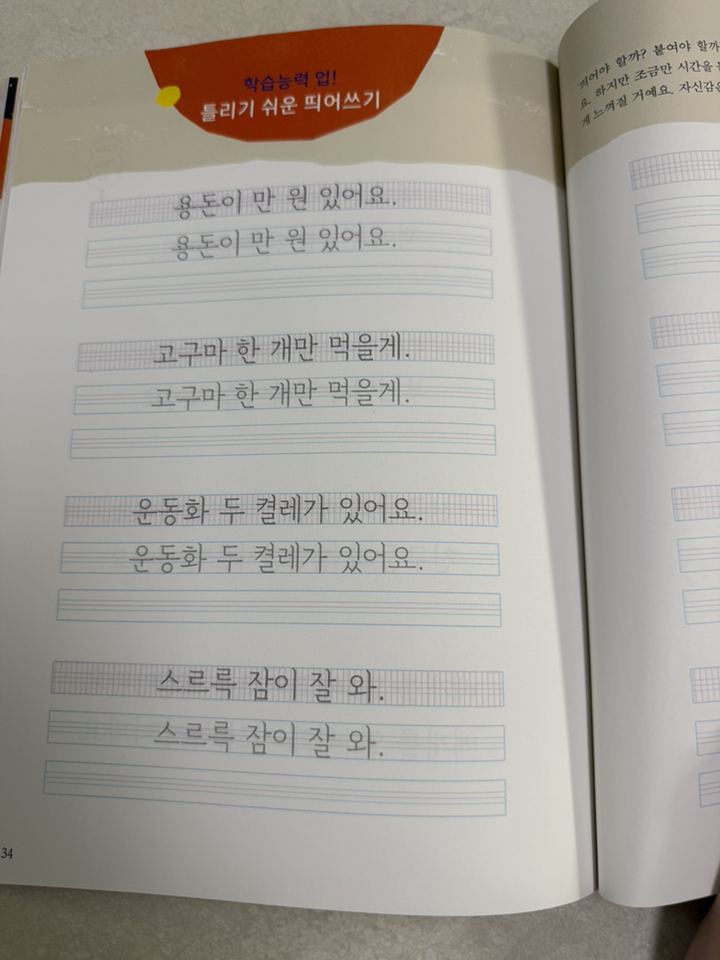 학습능력 업!
틀리기 쉬운 띄어쓰기
용돈이 만 원 있어요.
용돈이 만 원 있어요.
고구마 한 개만 먹을게.
고구마 한 개만 먹을게.
운동화 두 켤레가 있어요.
운동화 두 켤레가 있어요.
스르륵 잠이 잘 와.
스르륵 잠이 잘 와.
34
띄어야 할까? 붙여야 할까
요. 하지만 조금만 시간을
게 느껴질 거예요. 자신감은